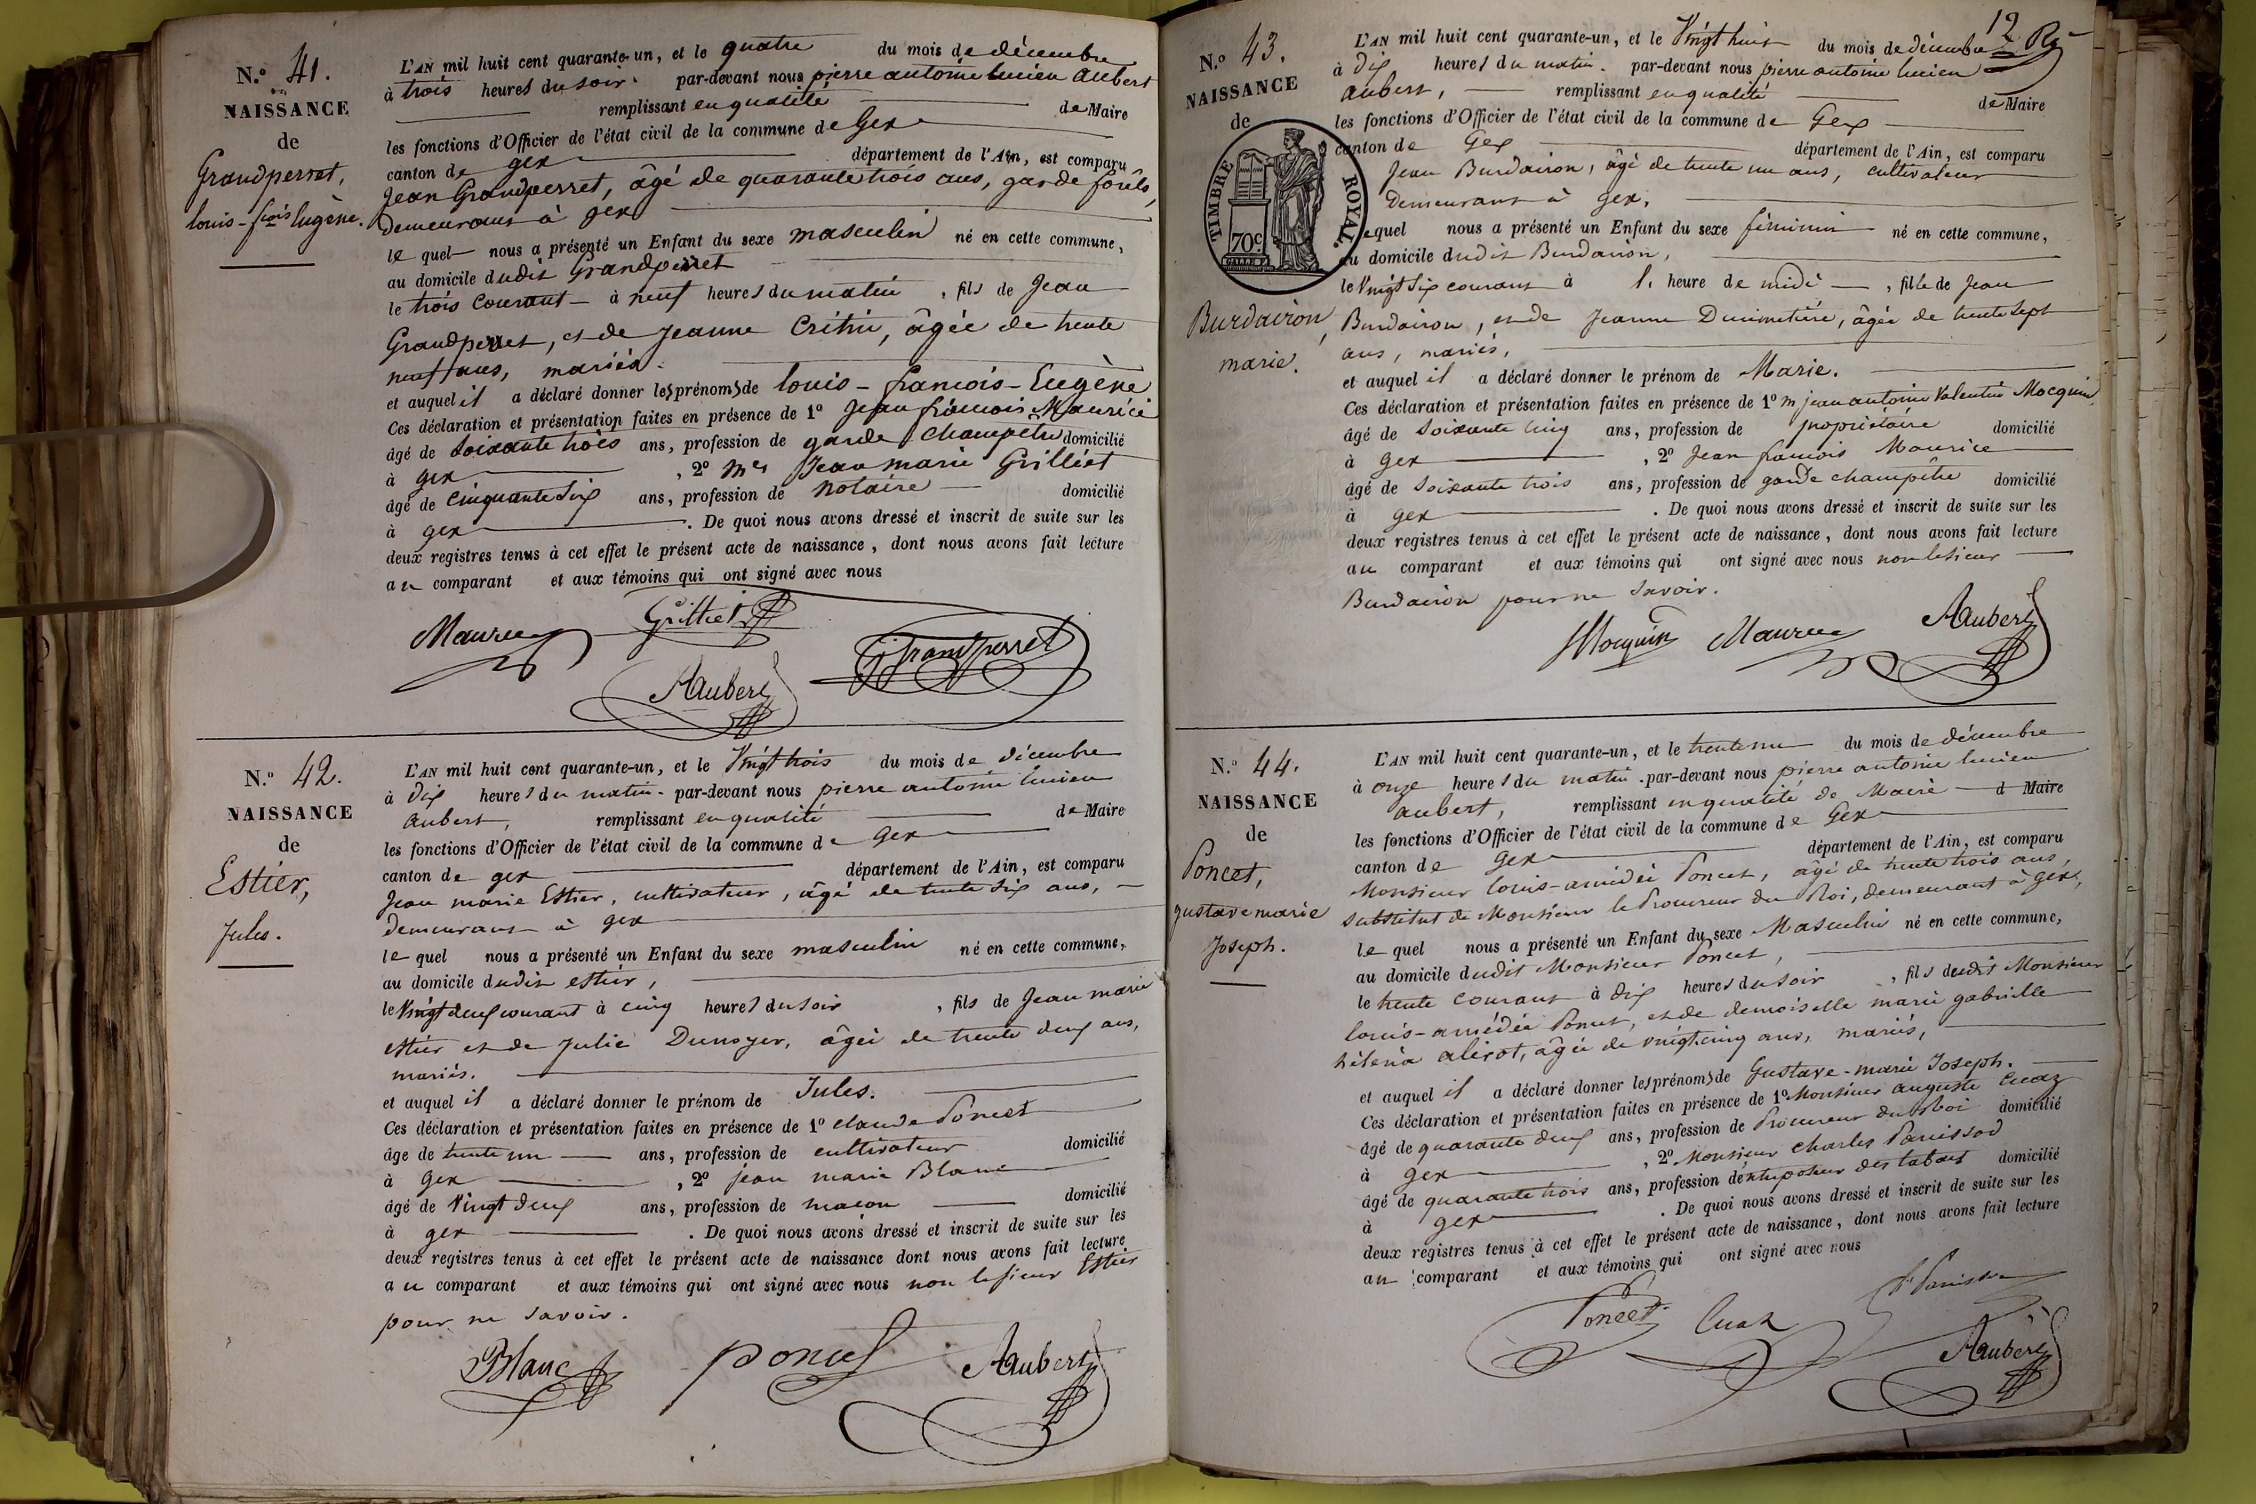 N.o 41.
NAISSANCE
de
Grandperret,
louis-fçois Eugène.
L'AN mil huit cent quarante-un, et le quatre du mois de décembre
à trois heures du soir. par-devant nous pierre antoine lucien Aubert
remplissant en qualité de Maire
les fonctions d'Officier de l'état civil de la commune de Gex
canton de gex département de l'Ain, est comparu
Jean Grandperret, âgé de quarante trois ans, garde forêts,
demeurant à gex
le quel nous a présenté un Enfant du sexe masculin né en cette commune,
au domicile dudit Grandperret
le trois courant à neuf heures du matin, fils de Jean
Grandperret, et de Jeanne Critin, âgée de trente
neuf ans, mariés.
et auquel il a déclaré donner les prénoms de louis-francois-Eugène
Ces déclaration et présentation faites en présence de 1o Jean francois Maurice
âgé de soixante trois ans, profession de garde champêtre domicilié
à gex, 2o Me Jean marie Grilliet
âgé de cinquante six ans, profession de notaire domicilié
à gex. De quoi nous avons dressé et inscrit de suite sur les
deux registres tenus à cet effet le présent acte de naissance, dont nous avons fait lecture
au comparant et aux témoins qui ont signé avec nous
Maurice Grilliet
Aubert Grandperret
N.o 42.
NAISSANCE
de
Estier,
Jules.
L'AN mil huit cent quarante-un, et le Vingt trois du mois de décembre
à dix heures du matin. par-devant nous pierre antoine lucien
aubert, remplissant en qualité de Maire
les fonctions d'Officier de l'état civil de la commune de gex
canton de gex département de l'Ain, est comparu
Jean marie Estier, cultivateur, âgé de trente six ans,
demeurant à gex
le quel nous a présenté un Enfant du sexe masculin né en cette commune,
au domicile dudit estier,
le Vingt deux courant à cinq heures du soir, fils de Jean marie
estier et de Julie Dunoyer, âgée de trente deux ans,
mariés.
et auquel il a déclaré donner le prénom de Jules.
Ces déclaration et présentation faites en présence de 1o claude Poncet
âge de trente un ans, profession de cultivateur domicilié
à gex, 2o jean marie Blanc
âgé de Vingt deux ans, profession de macon domicilié
à gex. De quoi nous avons dressé et inscrit de suite sur les
deux registres tenus à cet effet le présent acte de naissance dont nous avons fait lecture
au comparant et aux témoins qui ont signé avec nous non le sieur Estier
pour ne savoir.
Blanc poncet Aubert
12
N.o 43.
NAISSANCE
de
TIMBRE ROYAL.
70c
Burdairon,
marie.
L'AN mil huit cent quarante-un, et le Vingt huit du mois de décembre
à dix heures du matin. par-devant nous pierre antoine lucien
aubert, remplissant en qualité de Maire
les fonctions d'Officier de l'état civil de la commune de Gex
canton de Gex département de l'Ain, est comparu
Jean Burdairon, âgé de trente un ans, cultivateur
demeurant à gex,
lequel nous a présenté un Enfant du sexe féminin né en cette commune,
au domicile dudit Burdairon,
le Vingt six courant à 1. heure de midi, fille de Jean
Burdairon, et de Jeanne Dunimetière, âgée de trente sept
ans, mariés,
et auquel il a déclaré donner le prénom de Marie.
Ces déclaration et présentation faites en présence de 1o m jean antoine Valentin Mocquin
âgé de soixante cinq ans, profession de propriétaire domicilié
à gex, 2o Jean francois Maurice
âgé de soixante trois ans, profession de garde champêtre domicilié
à gex. De quoi nous avons dressé et inscrit de suite sur les
deux registres tenus à cet effet le présent acte de naissance, dont nous avons fait lecture
au comparant et aux témoins qui ont signé avec nous non le sieur
Burdairon pour ne savoir.
Mocquin Maurice Aubert
N.o 44.
NAISSANCE
de
Poncet,
gustave marie
Joseph.
L'AN mil huit cent quarante-un, et le trente un du mois de décembre
à onze heures du matin. par-devant nous pierre antoine lucien
aubert, remplissant en qualité de Maire d Maire
les fonctions d'Officier de l'état civil de la commune de Gex
canton de gex département de l'Ain, est comparu
Monsieur louis-amédée Poncet, âgé de trente trois ans,
substitut de Monsieur le Procureur du Roi, demeurant à gex,
le quel nous a présenté un Enfant du sexe Masculin né en cette commune,
au domicile dudit Monsieur Poncet,
le trente courant à dix heures du soir, fils dudit Monsieur
louis-amédée Poncet, et de demoiselle marie gabrielle
héléna alizot, âgée de vingt cinq ans, mariés,
et auquel il a déclaré donner les prénoms de Gustave-marie Joseph.
Ces déclaration et présentation faites en présence de 1o Monsieur auguste Cuaz
âgé de quarante deux ans, profession de Procureur du Roi domicilié
à gex, 2o Monsieur Charles Panissod
âgé de quarante trois ans, profession d'entreposeur des tabacs domicilié
à gex. De quoi nous avons dressé et inscrit de suite sur les
deux registres tenus à cet effet le présent acte de naissance, dont nous avons fait lecture
au comparant et aux témoins qui ont signé avec nous
Poncet Cuaz Panissod
Aubert